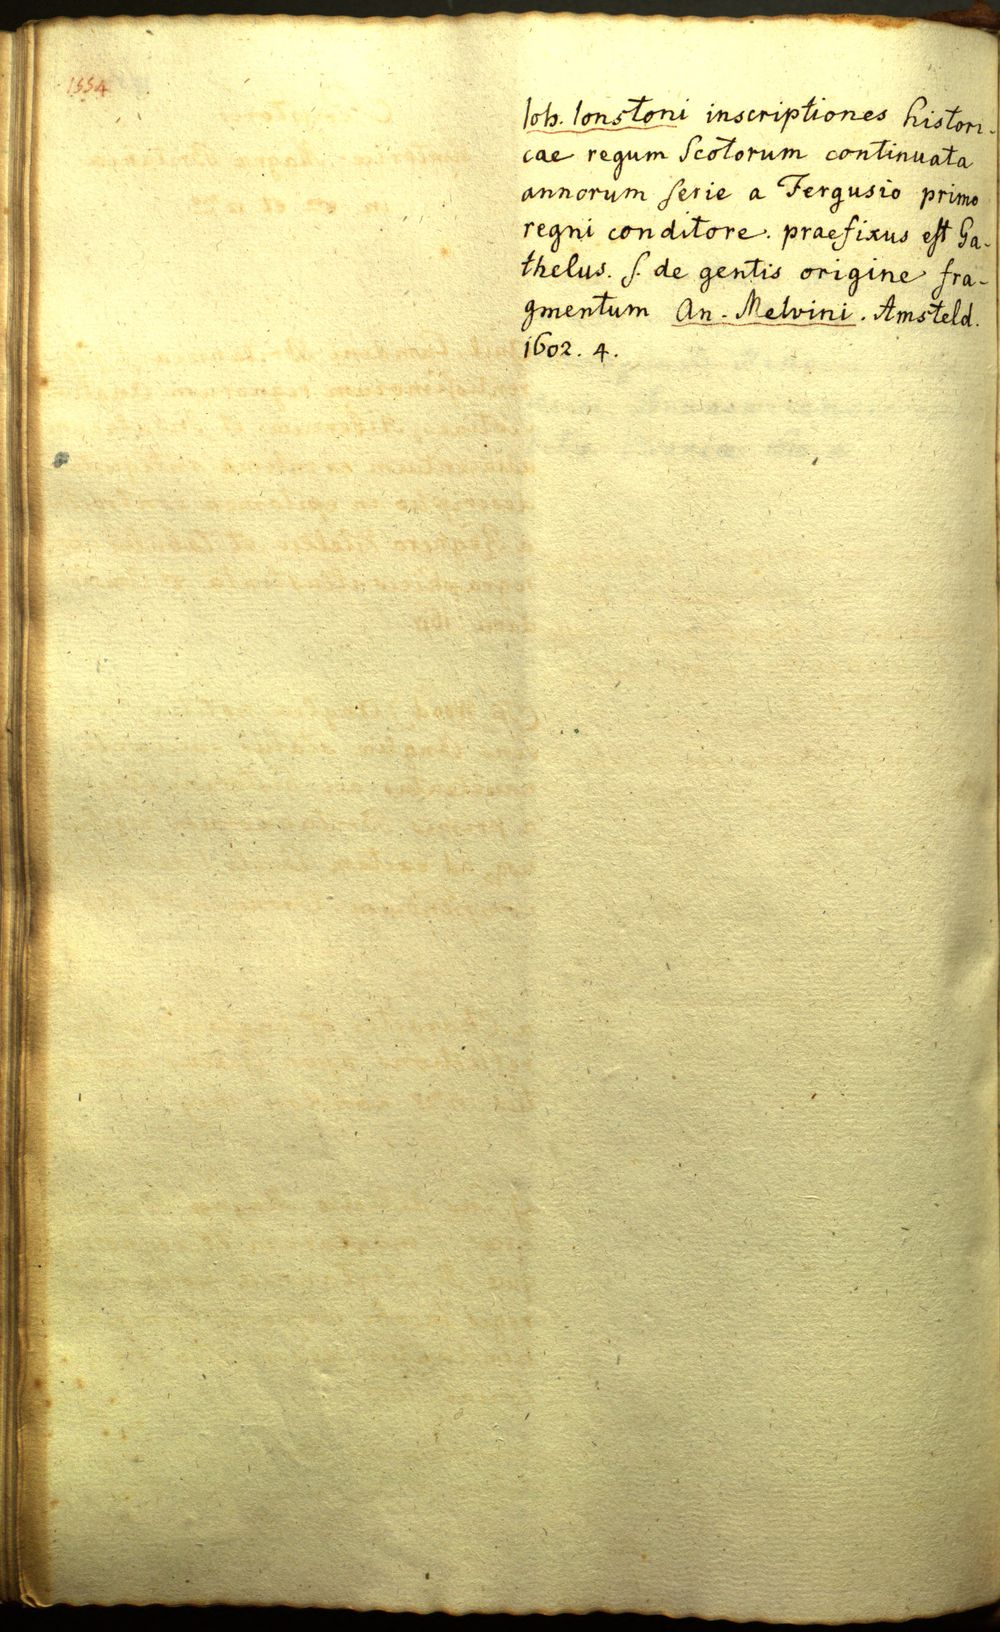 1554
Ioh. Ionstoni inscriptiones histori-
cae regum Scotorum continuata
annorum serie a Fergusio primo
regni conditore. praefixus est Ga-
thelus. s. de gentis origine fra-
gmentum An. Melvini. Amsteld.
1602. 4.